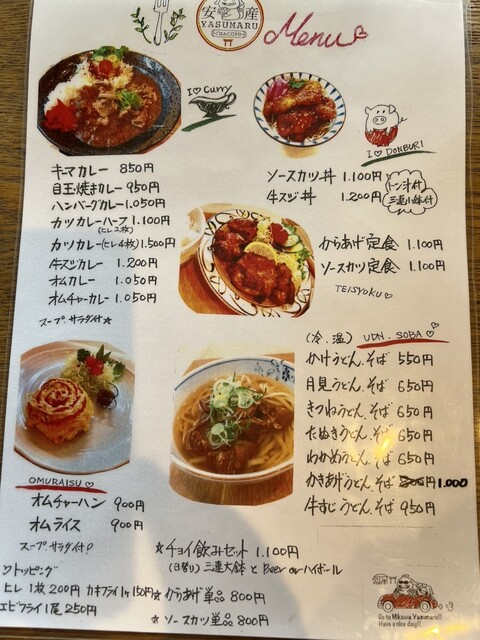 安産
YASUMARU
Menu
I♡Curry
キーマカレー 850円
目玉焼きカレー 950円
ハンバーグカレー 1.050円
カツカレーハーフ 1.100円
(ヒレ2枚)
カツカレー(ヒレ4枚) 1.500円
牛スジカレー 1.200円
オムカレー 1.050円
オムチャーカレー 1.050円
スープ.サラダ付★
I♡DONBURI
ソースカツ丼 1.100円
牛スジ丼 1.200円
トン汁付
三連小鉢付
からあげ定食 1.100円
ソースカツ定食 1.100円
TEISYOKU♡
(冷、温) UDN.SOBA♡
かけうどん.そば 550円
月見うどん.そば 650円
きつねうどん.そば 650円
たぬきうどん.そば 650円
わかめうどん.そば 650円
かきあげうどん.そば 1.000
牛すじうどん.そば 950円
OMURAISU♡
オムチャーハン 900円
オムライス 900円
スープ.サラダ付♡
♡トッピング
ヒレ1枚200円 カキフライ1ヶ150円
エビフライ1尾 250円
★チョイ飲みセット 1.100円
(日替り) 三連大鉢 と Beer or ハイボール
★からあげ単品 800円
★ソースカツ単品 800円
Go to Mikawa Yasumaru!!
Have a nice day!!